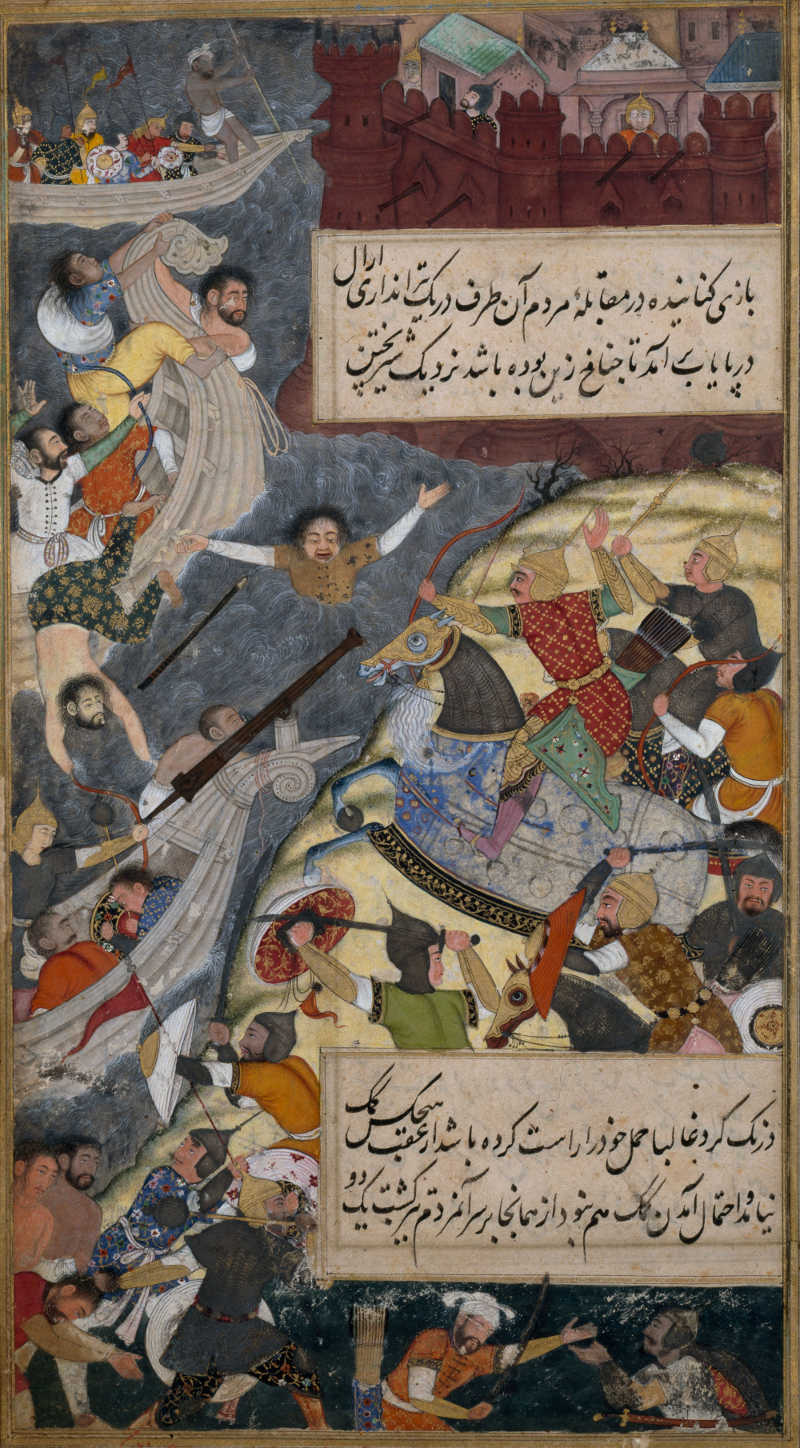 بازی کنانیده در مقابلهٔ مردم آن طرف در یک تیر اندازی ارال
در پایاب برآمد تا جناغ زین بوده باشد نزدیک شیر پختن
درنگ کرد غالبا حمل خود را راست کرده باشد از عقب هیچکس کمک
نیامد و احتمال آمدن کمک هم نبود از همانجا بر سر آن مردم برگشت یک دو